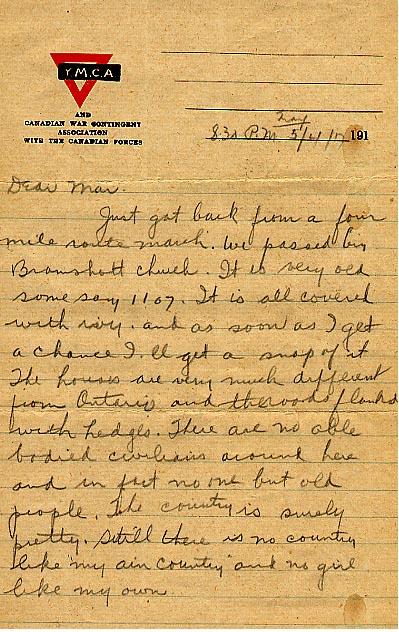 Y.M.C.A
AND
CANADIAN WAR CONTINGENT
ASSOCIATION
WITH THE CANADIAN FORCES
830 P.M. 5/4/17 191
Dear Mar.
Just got back from a four
mile route march. We passed by
Bramshott church. It is very old
some say 1107. It is all covered
with ivy. and as soon as I get
a chance I'll get a snap of it
The houses are very much different
from Ontario and the roads flanked
with hedges. There are no able
bodied civilians around here
and in fact no one but old
people. The country is surely
pretty. Still there is no country
like "my ain country" and no girl
like my own